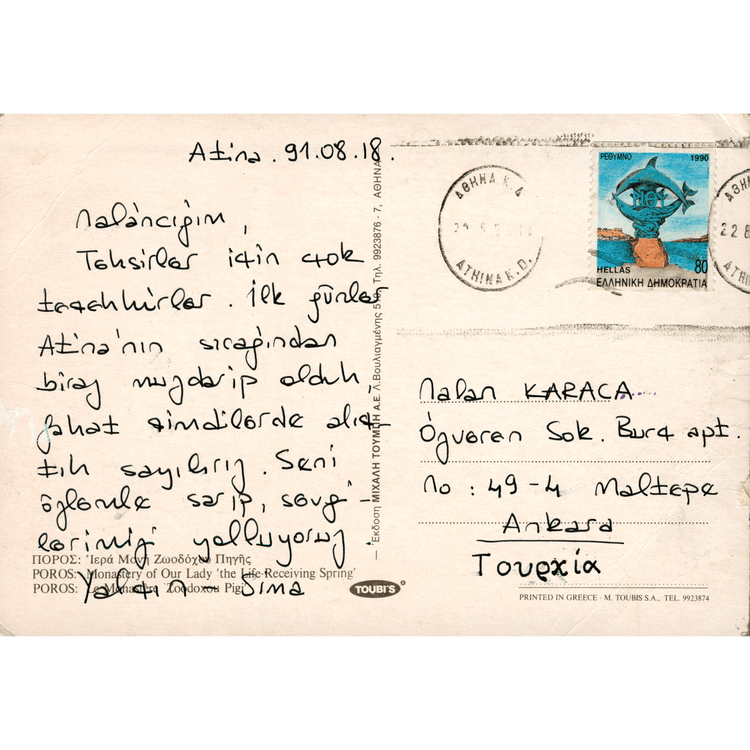 Atina. 91.08.18.
Nalâncığım,
Teksirler için çok
teşekkürler. İlk günler
Atina'nın sıcağından
biraz muzdarip olduk,
fakat şimdilerde alış-
tık sayılırız. Seni
özlemle sarıp, sevgi-
lerimizi yolluyoruz.
Yalçın – Sima
ΠΟΡΟΣ: Ἱερά Μονή Ζωοδόχου Πηγῆς
POROS: Monastery of Our Lady 'the Life-Receiving Spring'
POROS: Le Monastère Zoodoxou Pigi
Ἔκδοση ΜΙΧΑΛΗ ΤΟΥΜΠΗ Α.Ε. Λ. Βουλιαγμένης 519, Τηλ. 9923876 - 7, ΑΘΗΝΑ
TOUBI'S
ΑΘΗΝΑ Κ.Δ
ATHINA K.D.
ΡΕΘΥΜΝΟ 1990
HELLAS 80
ΕΛΛΗΝΙΚΗ ΔΗΜΟΚΡΑΤΙΑ
ΑΘΗΝ
22 8
ATHINA K.
Nalan KARACA
Özveren Sok. Burç apt.
No: 49-4 Maltepe
Ankara
Τουρχία
PRINTED IN GREECE - M. TOUBIS S.A., TEL. 9923874